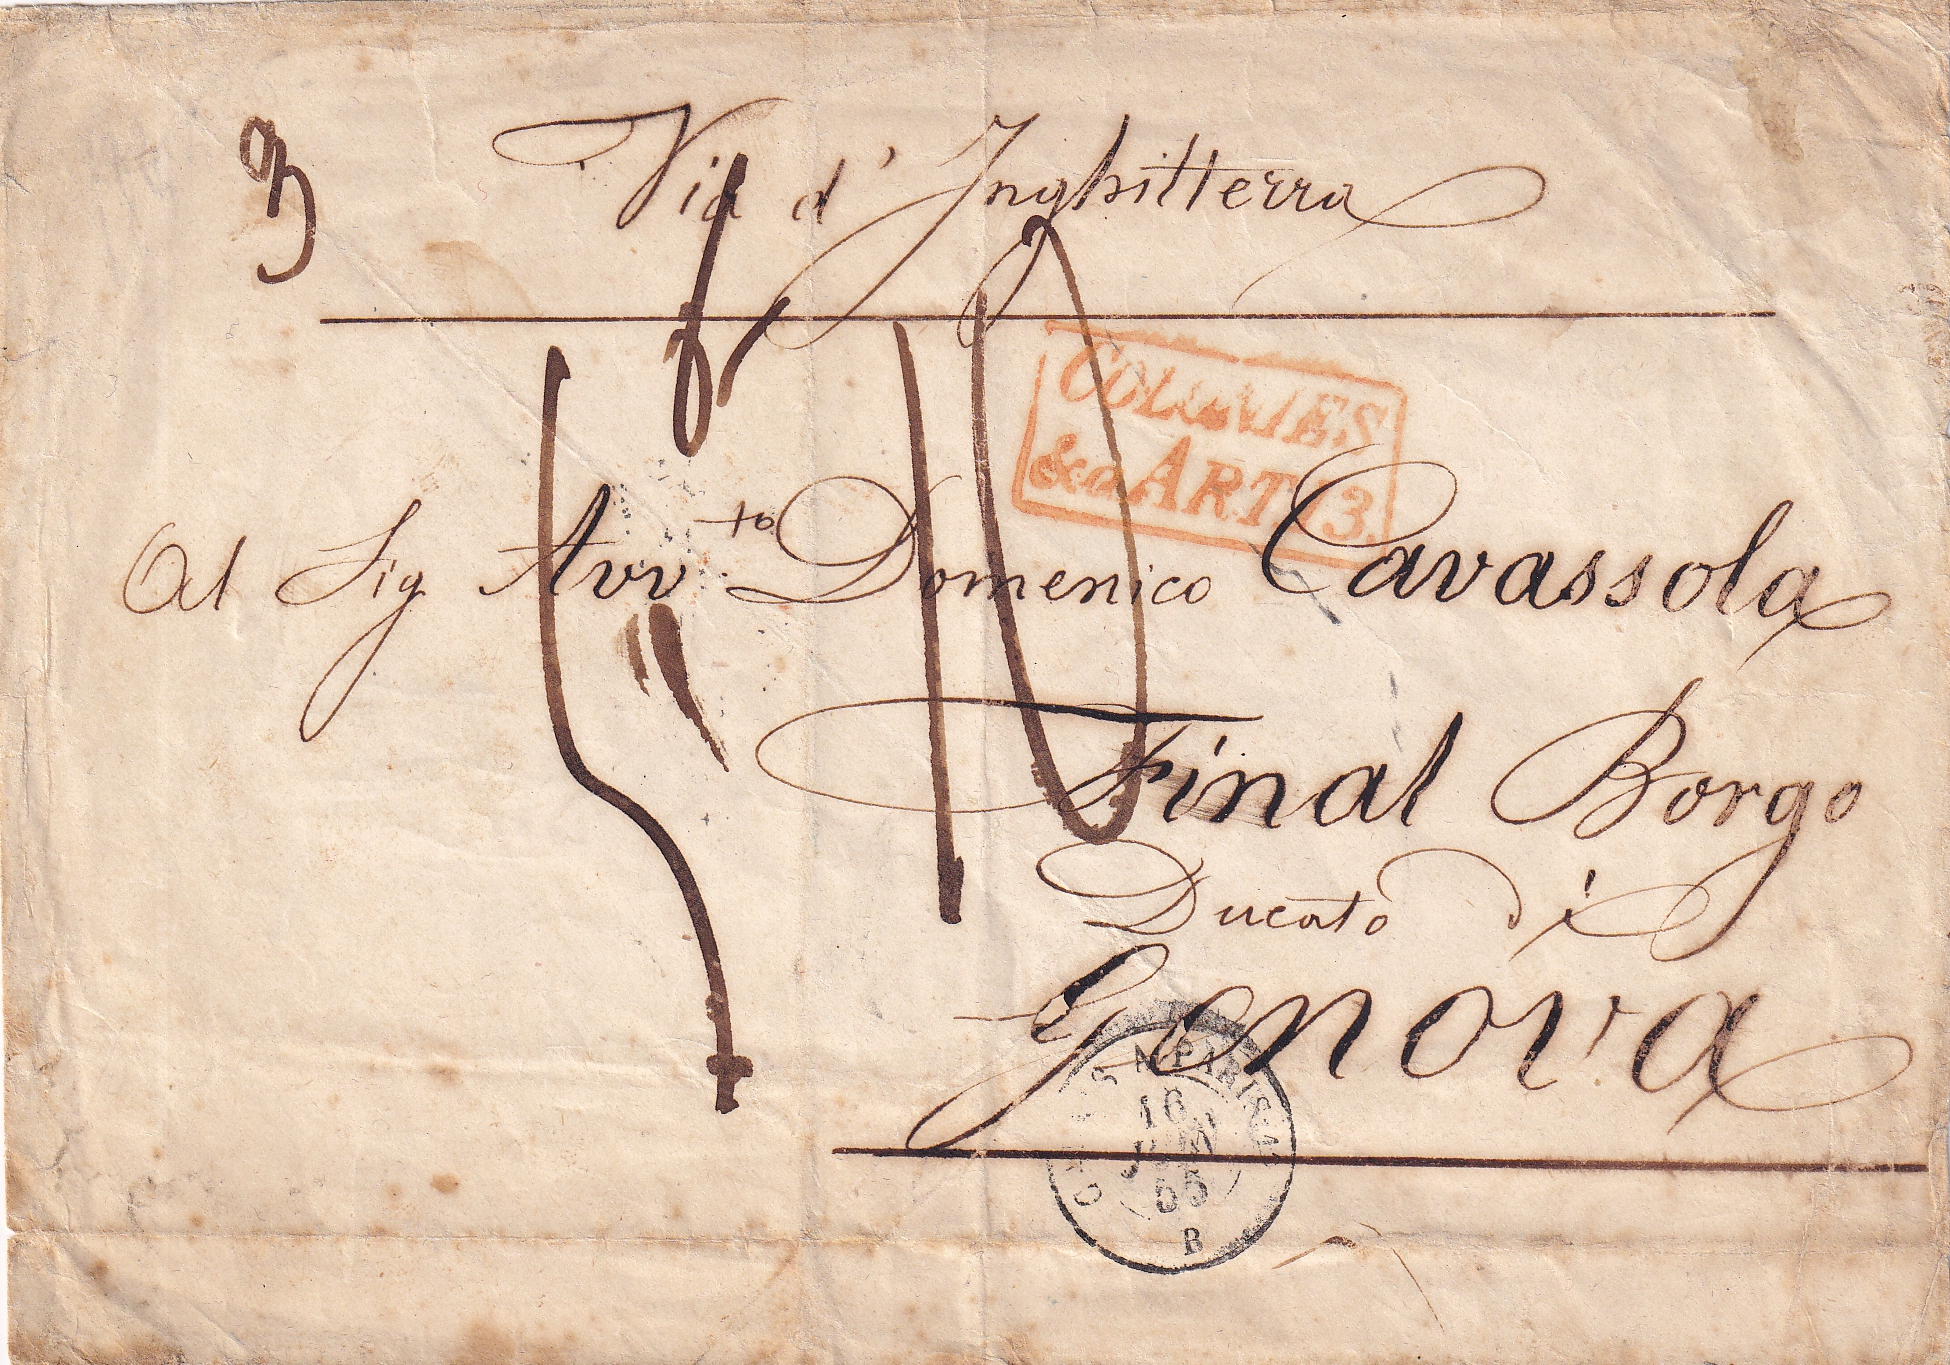 3
Via d'Inghilterra
COLONIES
&c. ART. 13.
Al Sig Avv.to Domenico Cavassola
Final Borgo
Ducato di
Genova
CALAIS A PARIS
16
JUIN
55
B